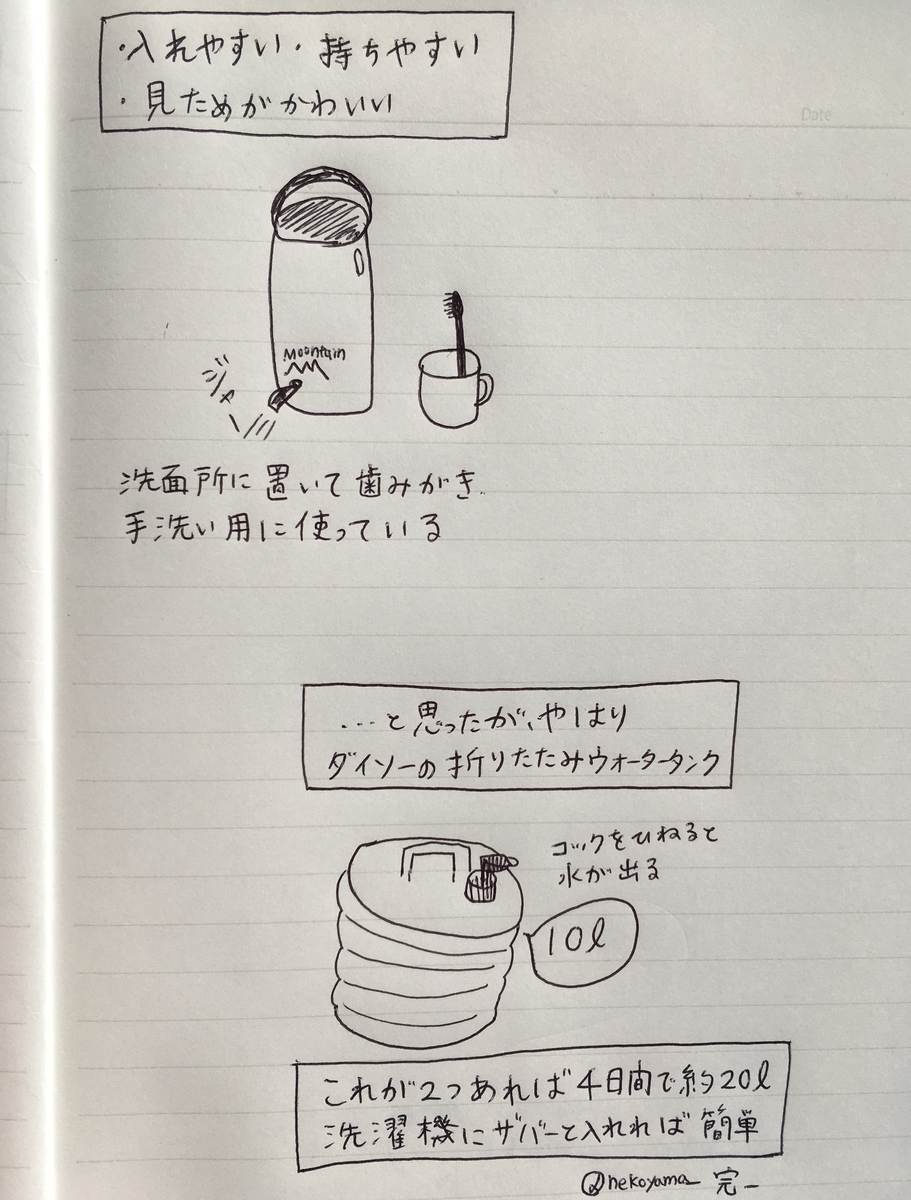 ・入れやすい・持ちやすい
・見ためがかわいい
Date
Mountain
ジャー
洗面所に置いて歯みがき
手洗い用に使っている
...と思ったが、やはり
ダイソーの折りたたみウォータータンク
コックをひねると
水が出る
10ℓ
これが2つあれば4日間で約20ℓ
洗濯機にザバーと入れれば簡単
@nekoyama 完